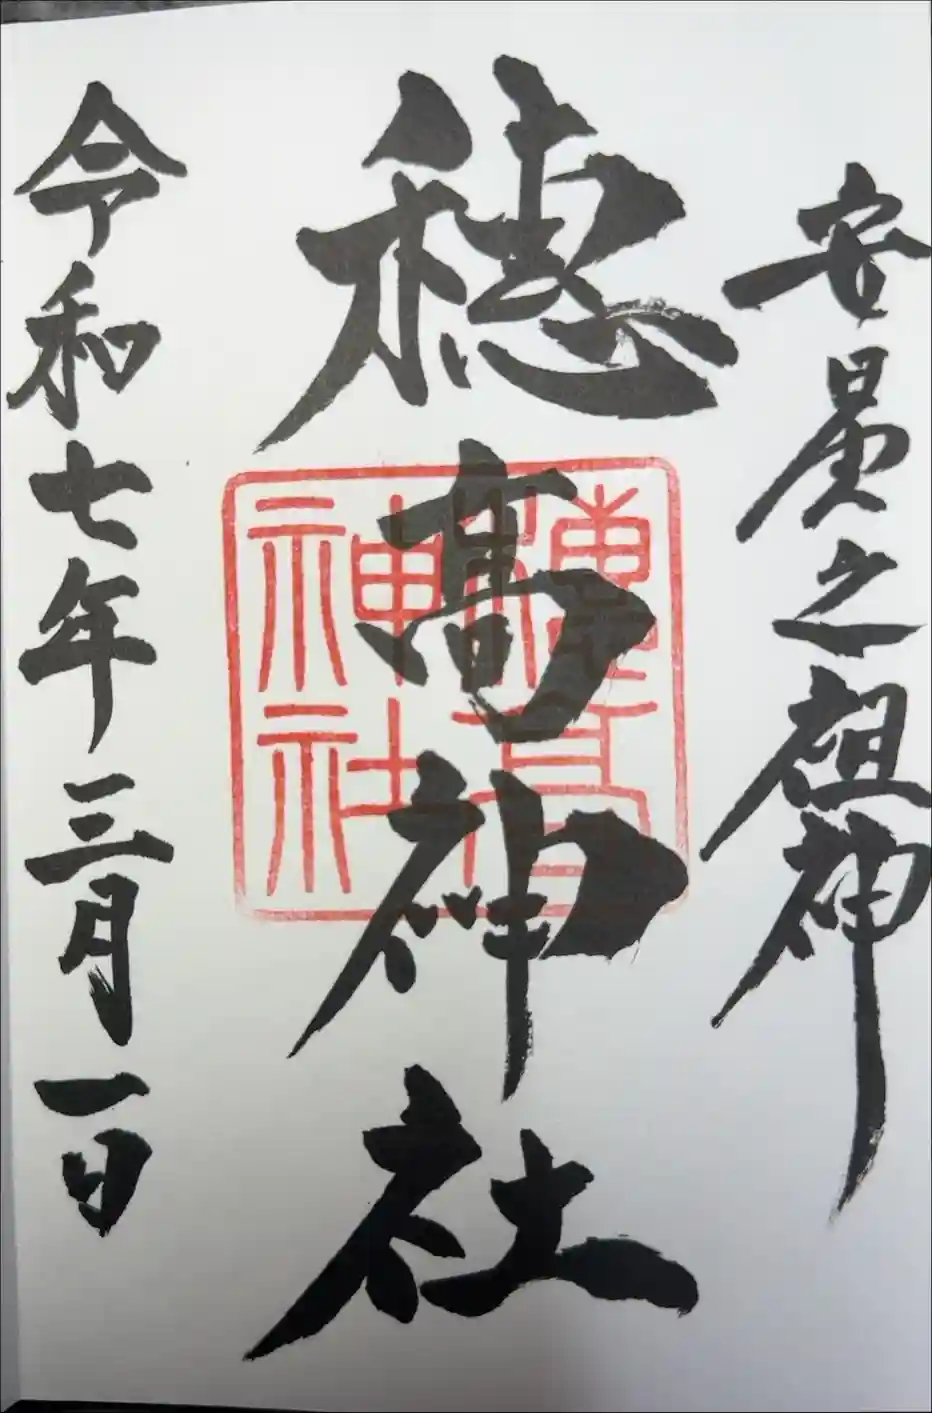 安曇之祖神
穂髙神社
穂高神社
令和七年三月一日